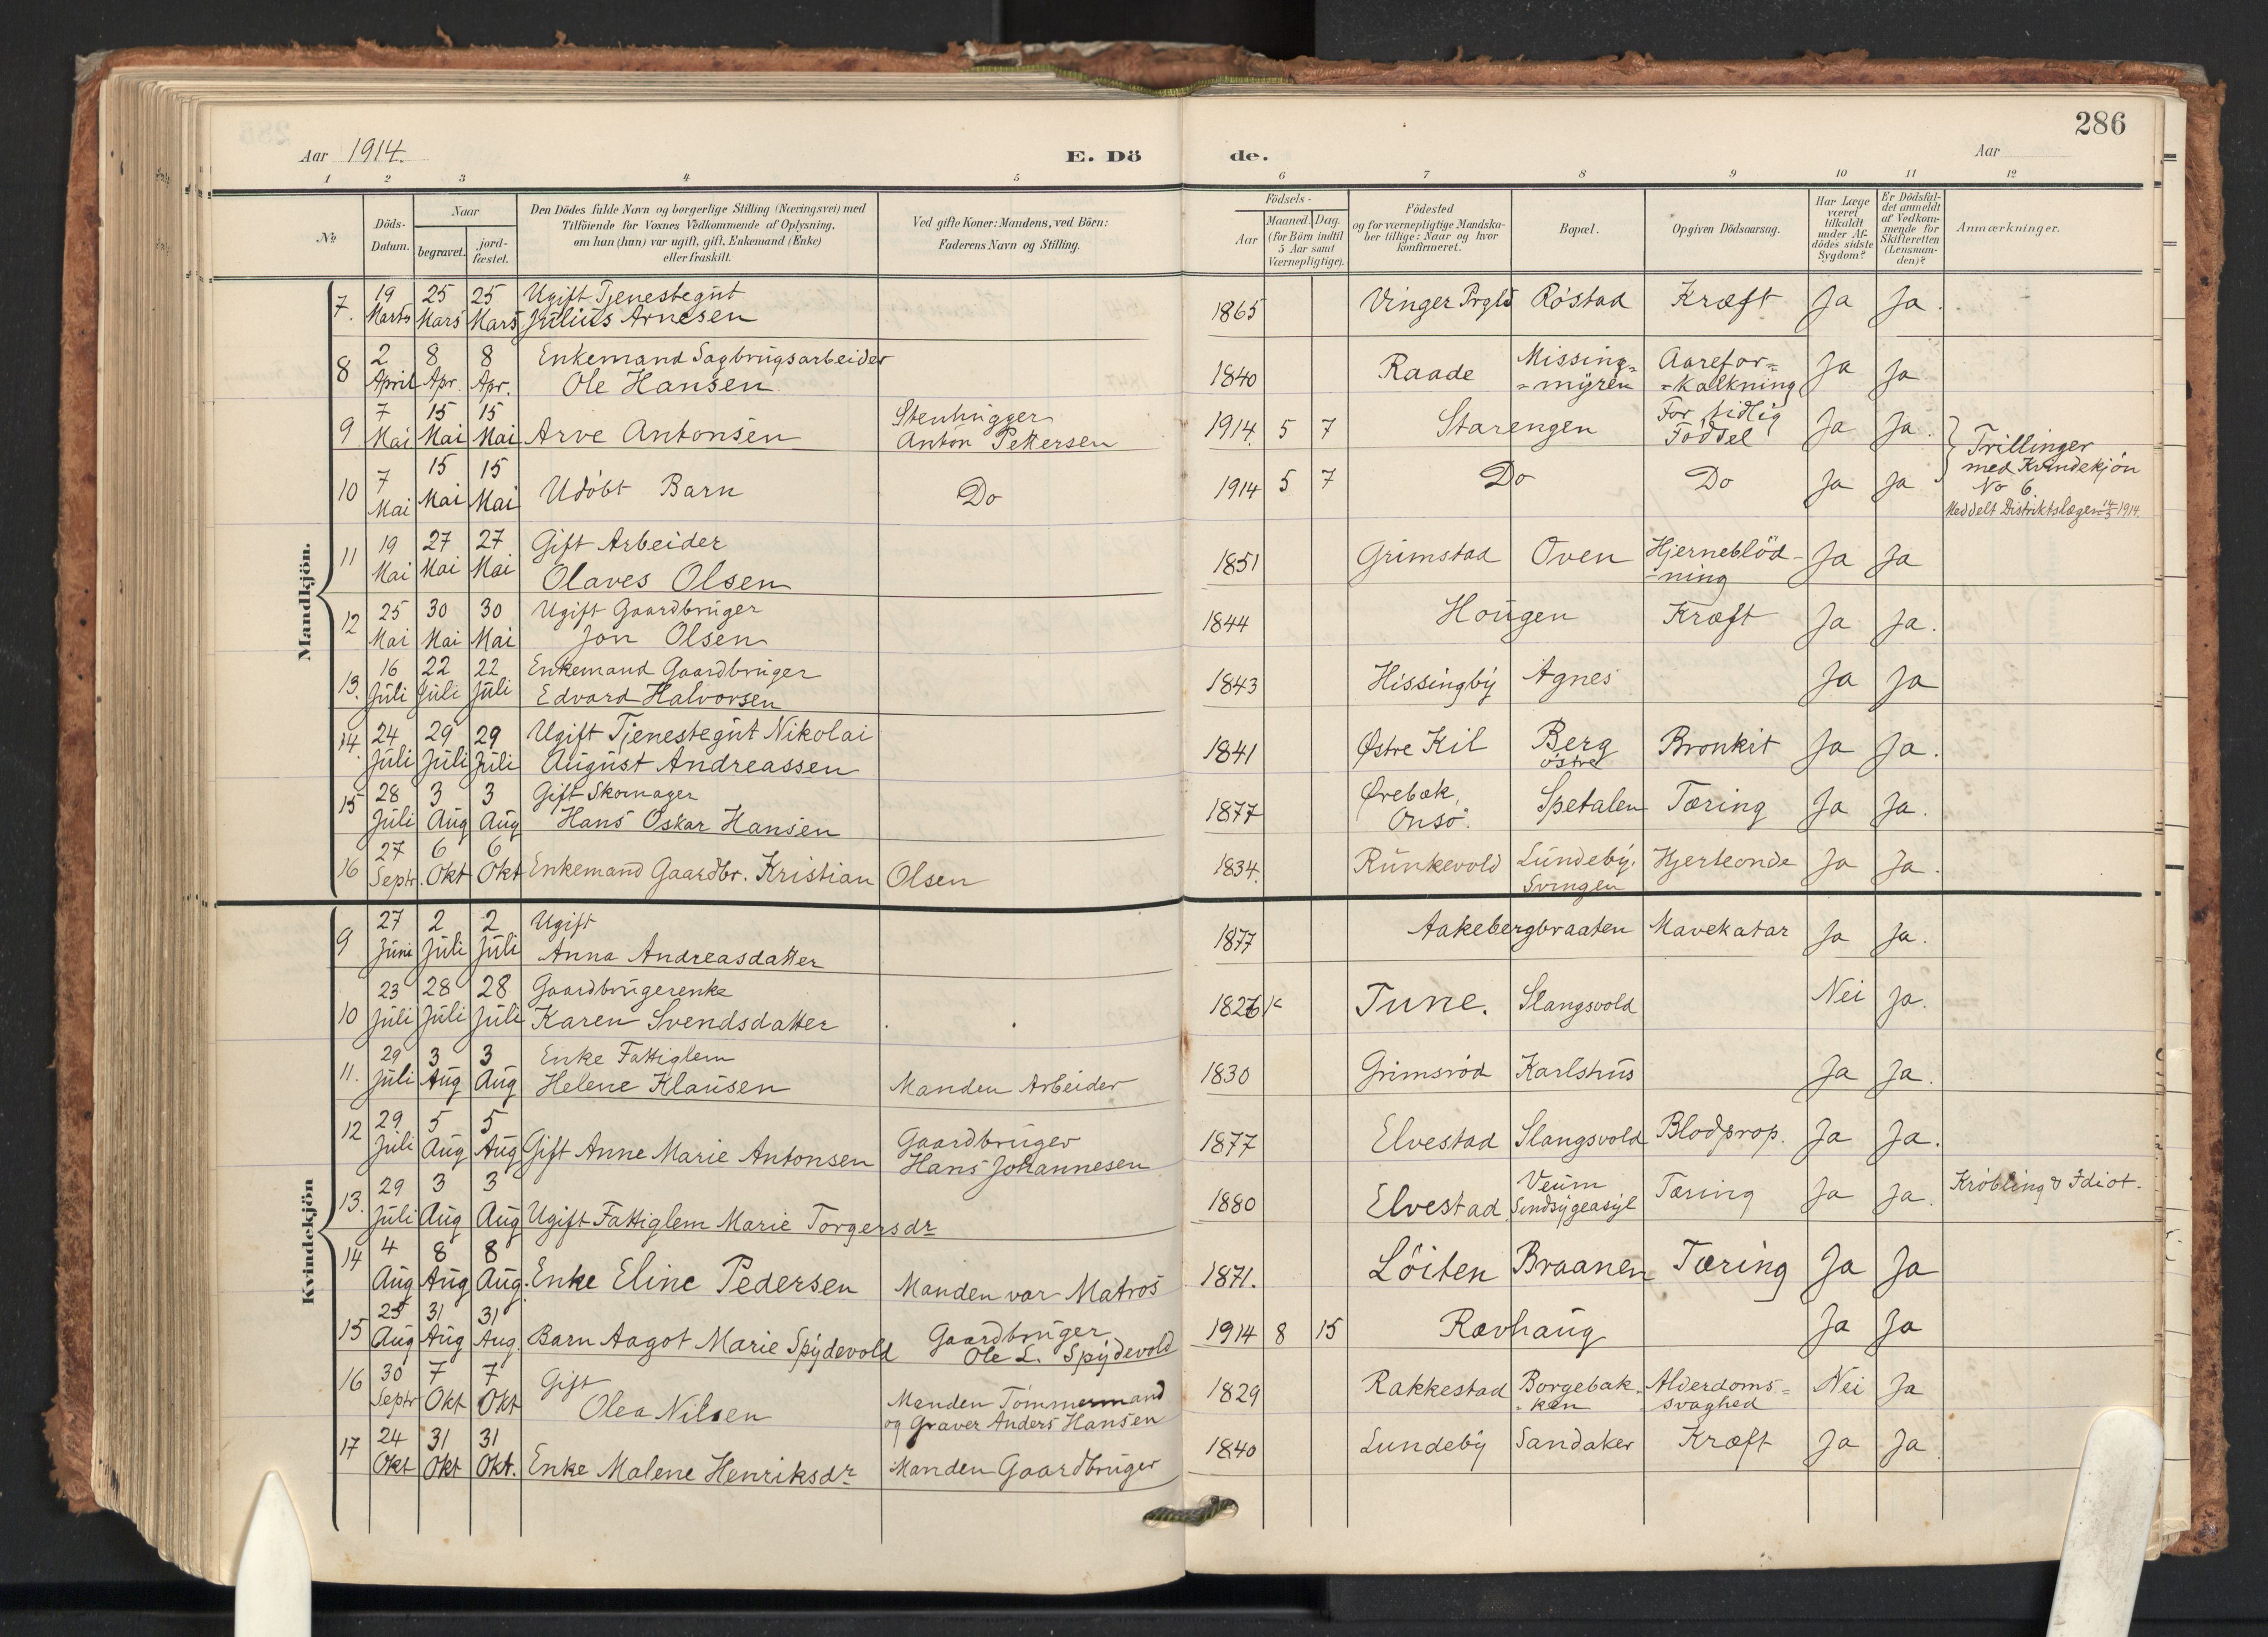 286
Aar 1914.
E. Dö de.
Aar
1 2 3 4 5 6 7 8 9 10 11 12
No
Döds-Datum.
Naar
begravet.
jord-fæstet.
Den Dödes fulde Navn og borgerlige Stilling (Næringsvei) med
Tilföiende for Voxnes Vedkommende af Oplysning,
om han (hun) var ugift, gift, Enkemand (Enke)
eller fraskilt.
Ved gifte Koner: Mandens, ved Börn:
Faderens Navn og Stilling.
Födsels-
Aar
Maaned. Dag.
(for Börn indtil
5 Aar samt
Værnepligtige).
Födested
og for værnepligtige Mandska-
ber tillige: Naar og hvor
konfirmeret.
Bopæl.
Opgiven Dödsaarsag.
Har Læge
været
tilkaldt
under Af-
dödes sidste
Sygdom?
Er Dödsfal-
det anmeldt
af Vedkom-
mende for
Skifteretten
(Lensman-
den)?
Anmærkninger.
Mandkjön.
7. 19 Marts 25 Mars 25 Mars Ugift Tjenestegut
Julius Arnesen 1865 Vinger Prgld Röstad Kræft Ja Ja.
8 2 April 8 Apr. 8 Apr. Enkemand Sagbrugsarbeider
Ole Hansen 1840 Raade Missing=
=myren Aarefor=
=kalkning Ja Ja
9 7 Mai 15 Mai 15 Mai Arve Antonsen Stenhugger
Anton Pettersen 1914. 5 7 Starengen For tidlig
Födsel Ja Ja.
10 7 Mai 15 Mai 15 Mai Udöbt Barn Do 1914 5 7 Do Do Ja Ja
Trillinger
med Kvindekjön
No 6.
Meddelt Distriktslægen 14/5 1914.
11 19 Mai 27 Mai 27 Mai Gift Arbeider
Olaves Olsen 1851 Grimstad Oven Hjerneblöd-
-ning Ja Ja
12 25 Mai 30 Mai 30 Mai Ugift Gaardbruger
Jon Olsen 1844 Hougen Kræft Ja Ja.
13. 16 Juli 22 Juli 22 Juli Enkemand Gaardbruger
Edvard Halvorsen 1843 Hissingby Agnes Ja Ja
14. 24 Juli 29 Juli 29 Juli Ugift Tjenestegut Nikolai
August Andreassen 1841 Østre Kil Berg
östre Bronkit Ja Ja.
15 28 Juli 3 Aug 3 Aug Gift Skomager
Hans Oskar Hansen 1877 Ørebæk,
Onsö. Spetalen Tæring Ja Ja.
16 27 Septr. 6 Okt 6 Okt Enkemand Gaardbr. Kristian Olsen 1834. Runkevold Lundeby.
Svingen Hjerteonde Ja Ja.
Kvindekjön
9 27 Juni 2 Juli 2 Juli Ugift
Anna Andreasdatter 1877 Aakebergbraaten Mavekatar Ja Ja.
10 23 Juli 28 Juli 28 Juli Gaardbrugerenke
Karen Svendsdatter 1826 Tune. Slangsvold Nei Ja.
11. 29 Juli 3 Aug 3 Aug Enke Fattiglem
Helene Klausen Manden Arbeider 1830 Grimsröd Karlshus Ja Ja.
12 29 Juli 5 Aug 5 Aug Gift Anne Marie Antonsen Gaardbruger
Hans Johannesen 1877 Elvestad Slangsvold Blodprop. Ja Ja.
13. 29 Juli 3 Aug 3 Aug Ugift Fattiglem Marie Torgersdr 1880 Elvestad Veum
Sindsygeasyl Tæring Ja Ja. Kröbling & Idiot.
14 4 Aug 8 Aug 8 Aug. Enke Eline Pedersen Manden var Matros 1871. Löiten Braanen Tæring Ja Ja
15 25 Aug 31 Aug 31 Aug. Barn Aagot Marie Spydevold Gaardbruger
Ole L. Spydevold 1914 8 15 Rævhaug Ja Ja
16 30 Septr 7 Okt 7 Okt Gift
Olea Nilsen Manden Tömmermand
og Graver Anders Hansen 1829 Rakkestad Borgebak-
-ken Alderdoms=
svaghed Nei Ja
17 24 Okt 31 Okt 31 Okt. Enke Malene Henriksdr Manden Gaardbruger 1840 Lundeby Sandaker Kræft Ja Ja.